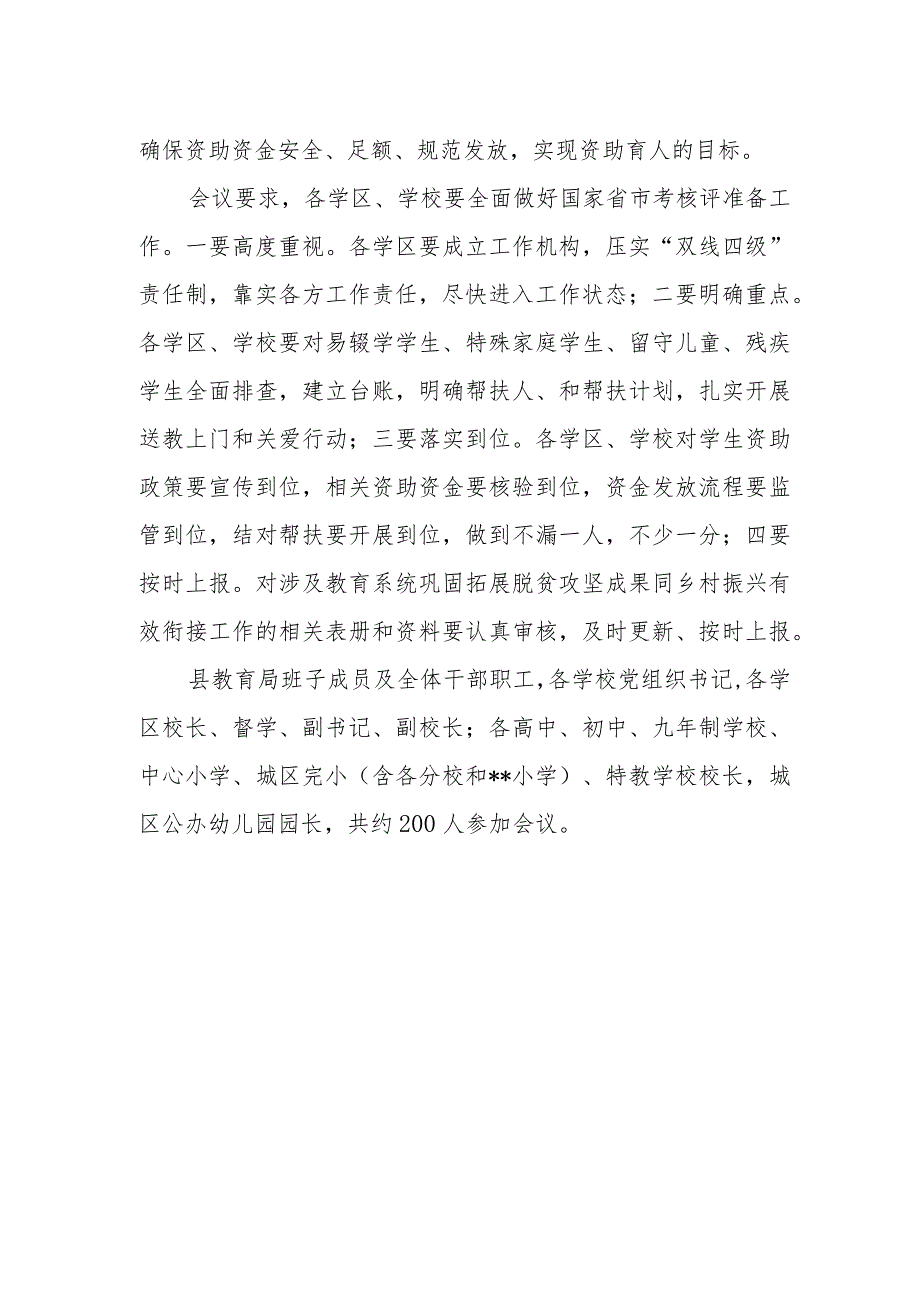 确保资助资金安全、足额、规范发放，实现资助育人的目标。
会议要求，各学区、学校要全面做好国家省市考核评准备工
作。一要高度重视。各学区要成立工作机构，压实“双线四级”
责任制，靠实各方工作责任，尽快进入工作状态；二要明确重点。
各学区、学校要对易辍学学生、特殊家庭学生、留守儿童、残疾
学生全面排查，建立台账，明确帮扶人、和帮扶计划，扎实开展
送教上门和关爱行动；三要落实到位。各学区、学校对学生资助
政策要宣传到位，相关资助资金要核验到位，资金发放流程要监
管到位，结对帮扶要开展到位，做到不漏一人，不少一分；四要
按时上报。对涉及教育系统巩固拓展脱贫攻坚成果同乡村振兴有
效衔接工作的相关表册和资料要认真审核，及时更新、按时上报。
县教育局班子成员及全体干部职工,各学校党组织书记,各学
区校长、督学、副书记、副校长；各高中、初中、九年制学校、
中心小学、城区完小（含各分校和**小学）、特教学校校长，城
区公办幼儿园园长，共约 200 人参加会议。